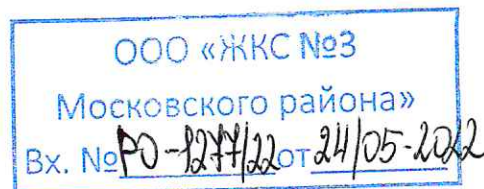 ООО «ЖКС №3
Московского района»
Вх. № РО-1277/22 от 24/05-2022